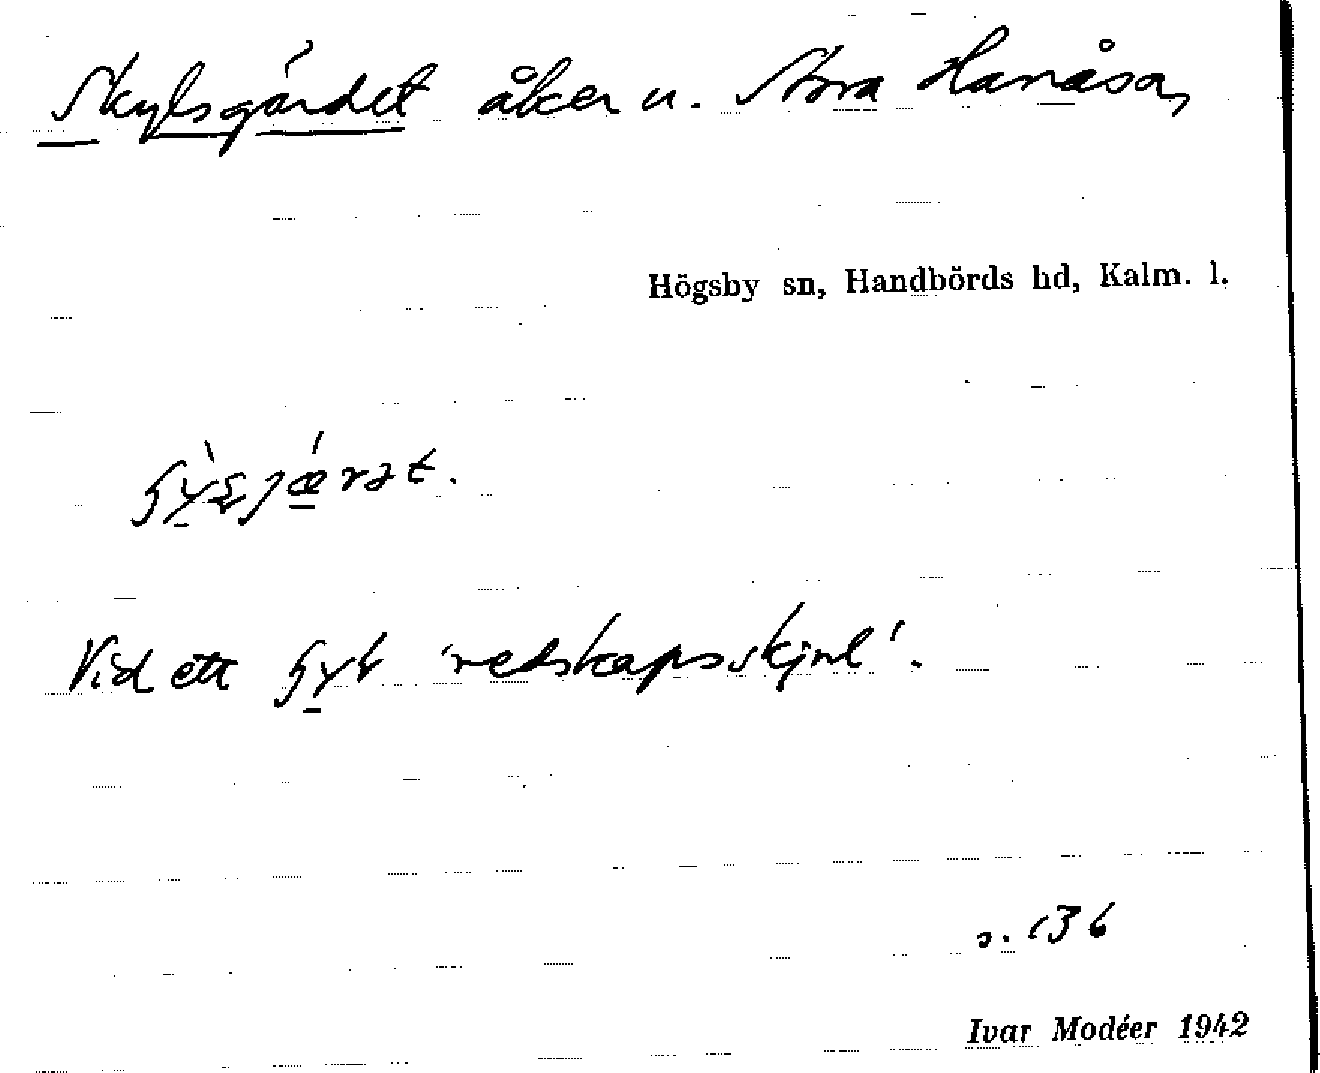 Skylsgärdet åker u. Stora Hanåsa,
Högsby sn, Handbörds hd, Kalm. l.
Vid ett 'redskapsskjul'.
s. 136
Ivar Modéer 1942